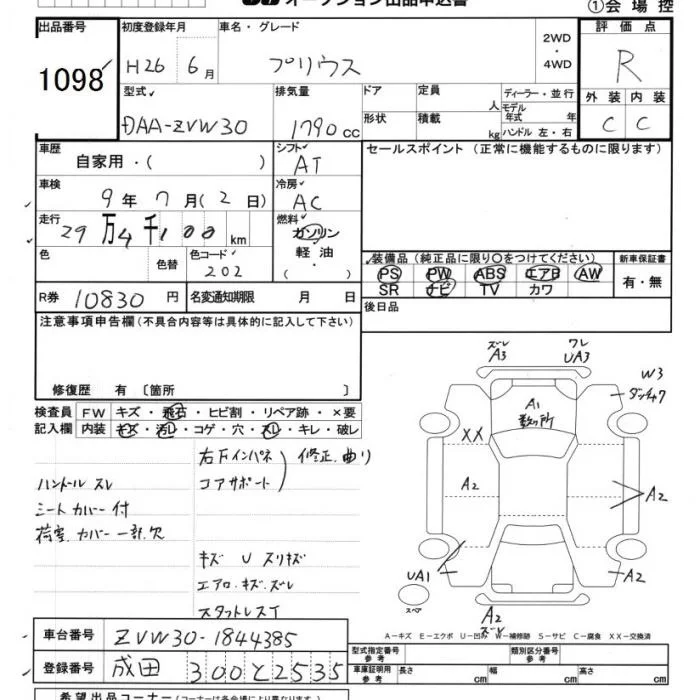 オークション出品申込書
①会場控
出品番号 初度登録年月 車名・グレード 2WD・4WD 評価点
1098 H26 6月 プリウス R
型式 排気量 ドア 定員 人 ディーラー・並行 外装 内装
DAA-ZVW30 1790cc 形状 積載 kg モデル年式 年 ハンドル 左・右 C C
車歴 自家用・( ) シフト AT セールスポイント (正常に機能するものに限ります)
車検 9年7月(2日) 冷房 AC
走行 29万4千100km 燃料 ガソリン 軽油 ・( )
色 色替 色コード 202
装備品 (純正品に限り○をつけてください) 新車保証書
PS PW ABS エアB AW 有・無
SR ナビ TV カワ
R券 10830円 名変通知期限 月 日 後日品
注意事項申告欄 (不具合内容等は具体的に記入して下さい)
修復歴 有 〔箇所 〕
検査員記入欄 FW キズ・飛石・ヒビ割・リペア跡・×要
内装 キズ・汚レ・コゲ・穴・スレ・キレ・破レ
右Fインパネ
コアサポート
修正.曲り
ハンドル スレ
シートカバー付
荷室.カバー一部.欠
キズ U スリキズ
エアロ.キズ.ズレ
スタットレスT
ズレ
A3
ワレ
UA3
W3
ダッチャク
A1
数ヶ所
XX
A2
A2
UA1
A2
スペア
A2
ズレ
A-キズ E-エクボ U-凹み W-補修跡 S-サビ C-腐食 XX-交換済
車台番号 ZVW30-1844385
登録番号 成田 300 と 2535
型式指定番号 参考 類別区分番号 参考
車庫証明用 参考 長さ cm 幅 cm 高さ cm
希望出品コーナー (コーナーは各会場により異なります。)